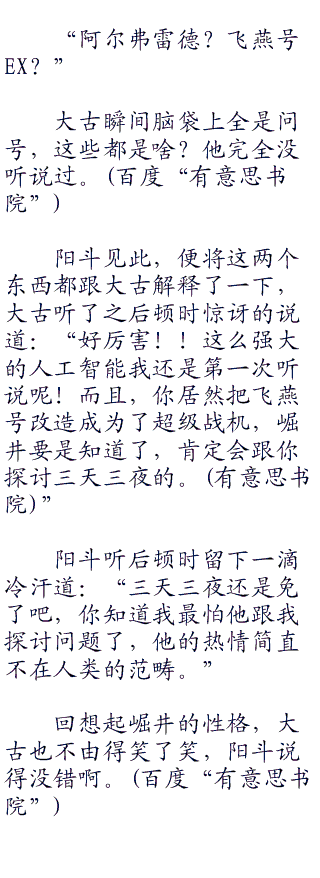 “阿尔弗雷德？飞燕号
EX？”
大古瞬间脑袋上全是问
号，这些都是啥？他完全没
听说过。(百度“有意思书
院”)
阳斗见此，便将这两个
东西都跟大古解释了一下，
大古听了之后顿时惊讶的说
道：“好厉害！！这么强大
的人工智能我还是第一次听
说呢！而且，你居然把飞燕
号改造成为了超级战机，崛
井要是知道了，肯定会跟你
探讨三天三夜的。(有意思书
院)”
阳斗听后顿时留下一滴
冷汗道：“三天三夜还是免
了吧，你知道我最怕他跟我
探讨问题了，他的热情简直
不在人类的范畴。”
回想起崛井的性格，大
古也不由得笑了笑，阳斗说
得没错啊。(百度“有意思书
院”)